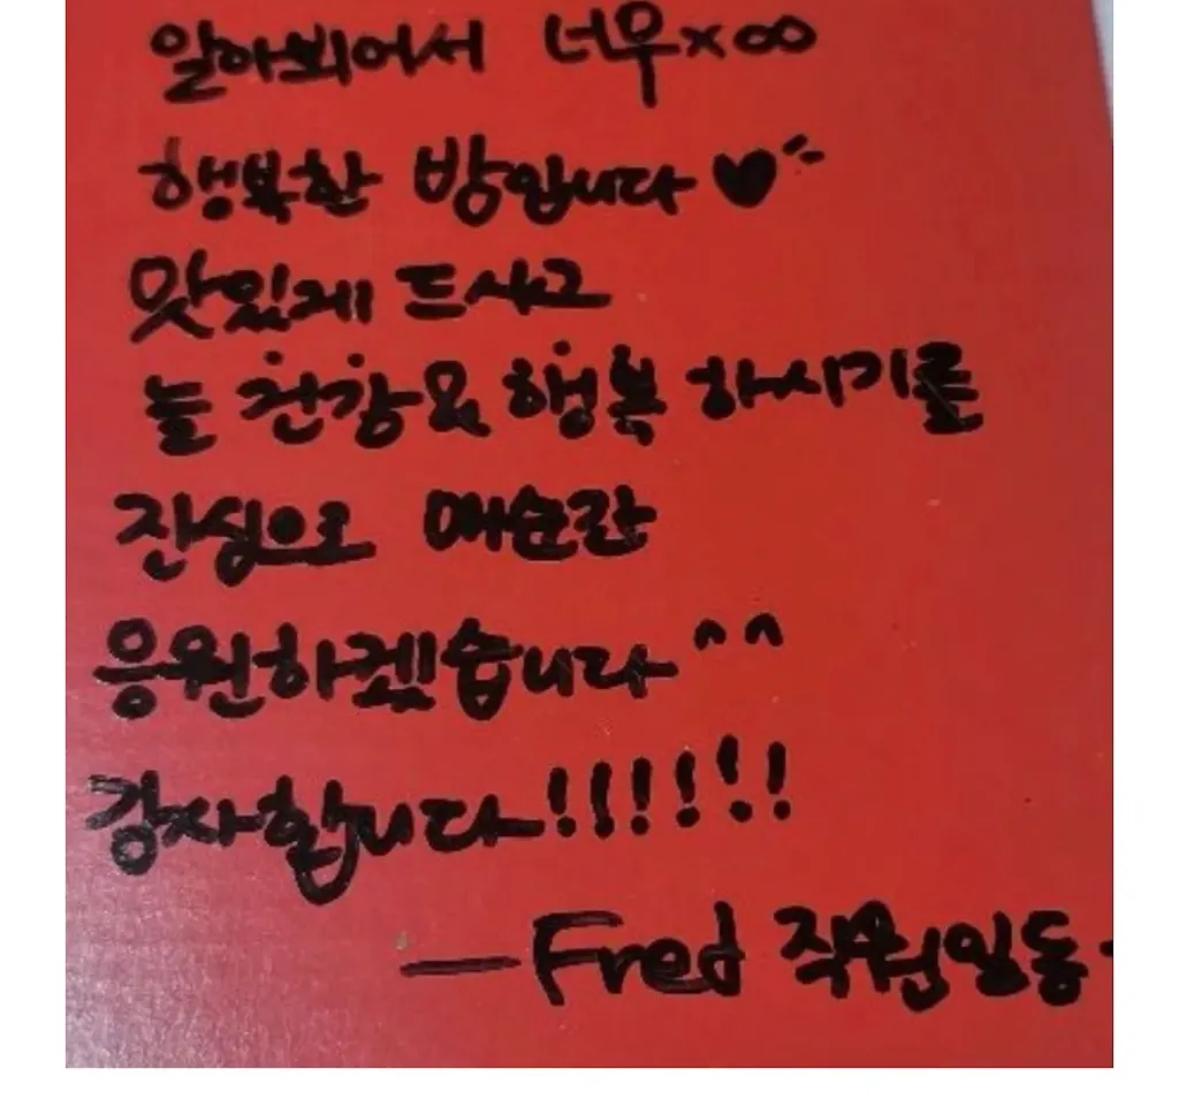 알아뵈어서 너무×∞
행복한 밤입니다♥
맛있게 드시고
늘 건강요 행복 하시기를
진심으로 매순간
응원하겠습니다^^
감사합니다!!!!!!
—Fred 직원일동-